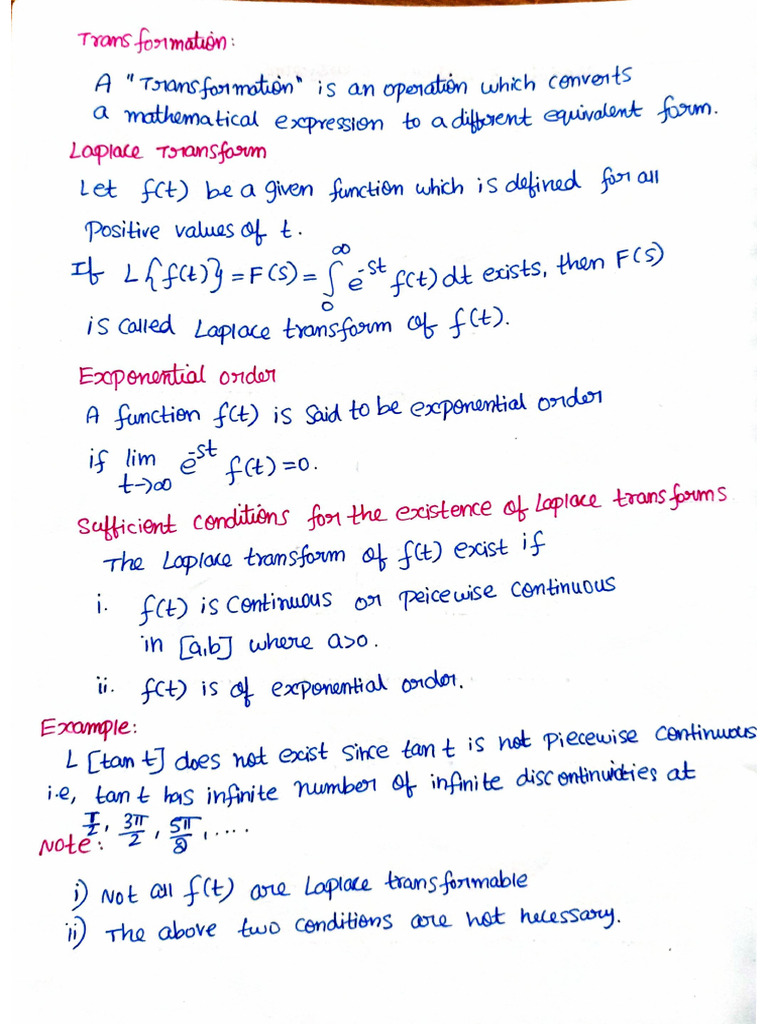 Transformation:
A "Transformation" is an operation which converts
a mathematical expression to a different equivalent form.
Laplace Transform
Let f(t) be a given function which is defined for all
Positive values of t.
If L{f(t)} = F(S) = ∫₀^∞ e^-st f(t) dt exists, then F(S)
is called Laplace transform of f(t).
Exponential order
A function f(t) is said to be exponential order
if lim t→∞ e^-st f(t) = 0.
Sufficient conditions for the existence of Laplace transforms
The Laplace transform of f(t) exist if
i. f(t) is continuous or peicewise continuous
in [a,b] where a>0.
ii. f(t) is of exponential order.
Example:
L [tan t] does not exist since tan t is not piecewise continuous
i.e, tan t has infinite number of infinite discontinuities at
π/2, 3π/2, 5π/2, ....
Note:
i) Not all f(t) are Laplace transformable
ii) The above two conditions are not necessary.